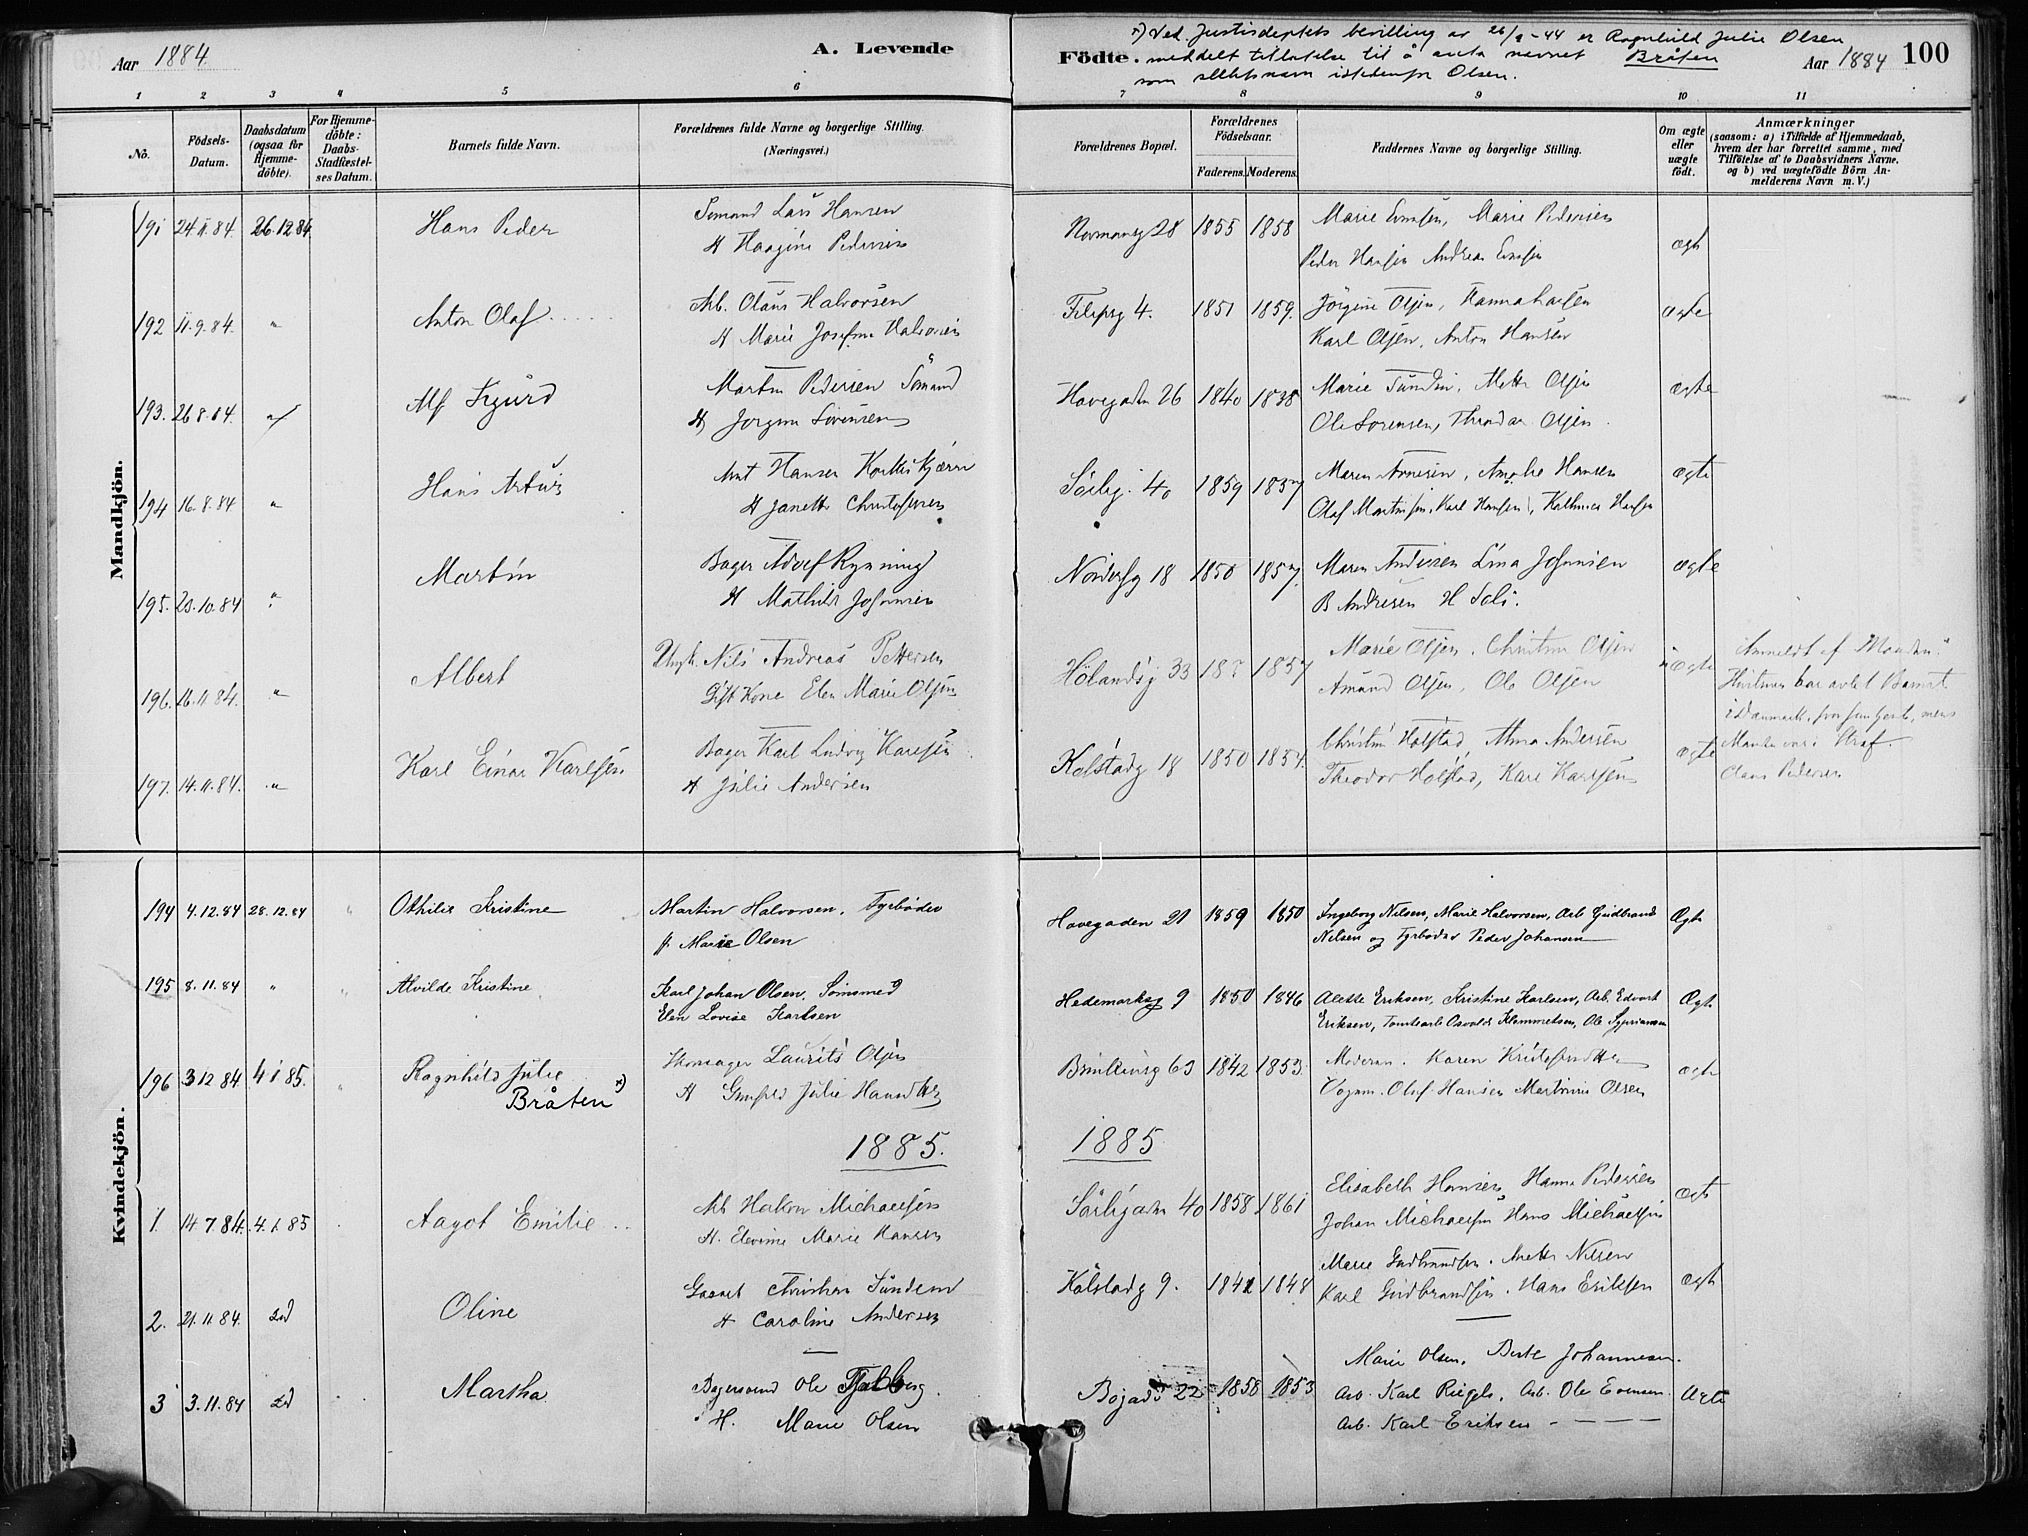 Aar 1884
A. Levende
Födte.
*) Ved Justisdeptets bevilling av 26/ -44 er Ragnhild Julie Olsen
meddelt tillatelse til å anta navnet Bråten
som slektsnavn istedenfor Olsen.
Aar 1884
100
1 2 3 4 5 6 7 8 9 10 11
No.
Födsels-Datum.
Daabsdatum (ogsaa for Hjemme-döbte).
For Hjemme-döbte: Daabs-Stadfæstel-ses Datum.
Barnets fulde Navn.
Forældrenes fulde Navne og borgerlige Stilling.
(Næringsvei.)
Forældrenes Bopæl.
Forældrenes Födselsaar.
Faderens. Moderens.
Faddernes Navne og borgerlige Stilling.
Om ægte eller uægte födt.
Anmærkninger
(saasom: a) i Tilfælde af Hjemmedaab,
hvem der har forrettet samme, med
Tilföielse af to Daabsvidners Navne,
og b) ved uægtefödte Börn An-
melderens Navn m. V.)
Mandkjön.
191 24.11.84. 26.12.84 Hans Peder Sömand Lars Hansen 1855 1858
H Haagine Pedersen Peder Hansen Andreas
192 11.9.84. " Anton Olaf Arb. Olaus Halvorsen Filipsg 4. 1851 1859. Jörgine Olsen, Hanna Hansen
H Marie Josefine Halvorsen Karl Olsen, Anton Hansen
193. 26.8.84. " Alf Sigurd Martin Pedersen Sömand Havegaden 26 1840 1838 Marie Sundin, Mette Olsen ægte
H Jörgine Sörensen Ole Sorensen, Theodor Olsen
194 16.8.84 " Hans Artur Hansen Sörlig. 40 1859 1857 Maren Arnesen, Amalie Hansen ægte
H Janette Christofersen Olaf Martinsen, Karl Hansen, Hansen
195. 20.10.84 " Martin Bager Adolf Rynning Norderhg 18 1850 1857. Maren Andersen Lina Johansen ægte
H Mathilde Johansen B Andresen H Soli.
196. 16.11.84. " Albert Ungk. Nils Andreas Pettersen Hölandsg 33 1857 Marie Olsen, Christine Olsen uægte Anmeldt af Manden.
Gift Kone Elen Marie Olsen Amund Olsen, Ole Olsen har avlet Barnet
i Danmark, mens
197. 14.11.84. " Karl Einar Karlsen Bager Karl Ludvig Karlsen Kolstadg 18 1850 1854. Christine Holstad, Anna Andersen ægte Manden var i Straf.
H Julie Andersen Theodor Holstad, Karl Karlsen Claus Pedersen
Kvindekjön.
194 4.12.84 28.12.84 " Othilie Kristine Martin Halvorsen, Fyrböder Havegaden 21 1859 1850 Ingeborg Nilsen, Marie Halvorsen, Arb Gudbrand Ægte
H. Marie Olsen Nilsen og Fyrböder Peder Johansen
195 8.11.84 " " Alvilde Kristine Karl Johan Olsen, Sömsmed Hedemarksg 9 1850 1846 Alette Eriksen, Kristine Karlsen, Arb. Edvart Ægte
Elen Lovise Karlsen Eriksen, Tomtearb Osvald Klemmetsen, Ole Syprianson
196 3.12.84 4.1.85. " Ragnhild Julie Skomager Laurits Olsen 63 1842 1853. Moderen. Karen ægte
Bråten *) H Julie Vognm. Olaf Hansen Olsen
1885.
1885
1. 14.7.84. 4.1.85 Aagot Emilie Arb Haakon Michaelsen Sörligaden 40 1858 1861 Elisabeth Hansen, Hanna Pedersen Ægte
H. Elevine Marie Hansen Johan Michaelsen Hans Michaelsen
2. 21.11.84. Oline Christian Sundem Kolstadg 9. 1842 1848 Marie Gudbrandsen, Anette Nilsen Ægte
H Caroline Andersen Karl Gudbrandsen, Hans Eriksen
3 3.11.84 Martha Bagersvend Ole Fjeldberg 22 1858 1853 Marie Olsen, Berte Johannesen.
H. Marie Olsen Arb. Karl Riegels, Arb. Ole Evensen Ægte
Arb. Karl Eriksen